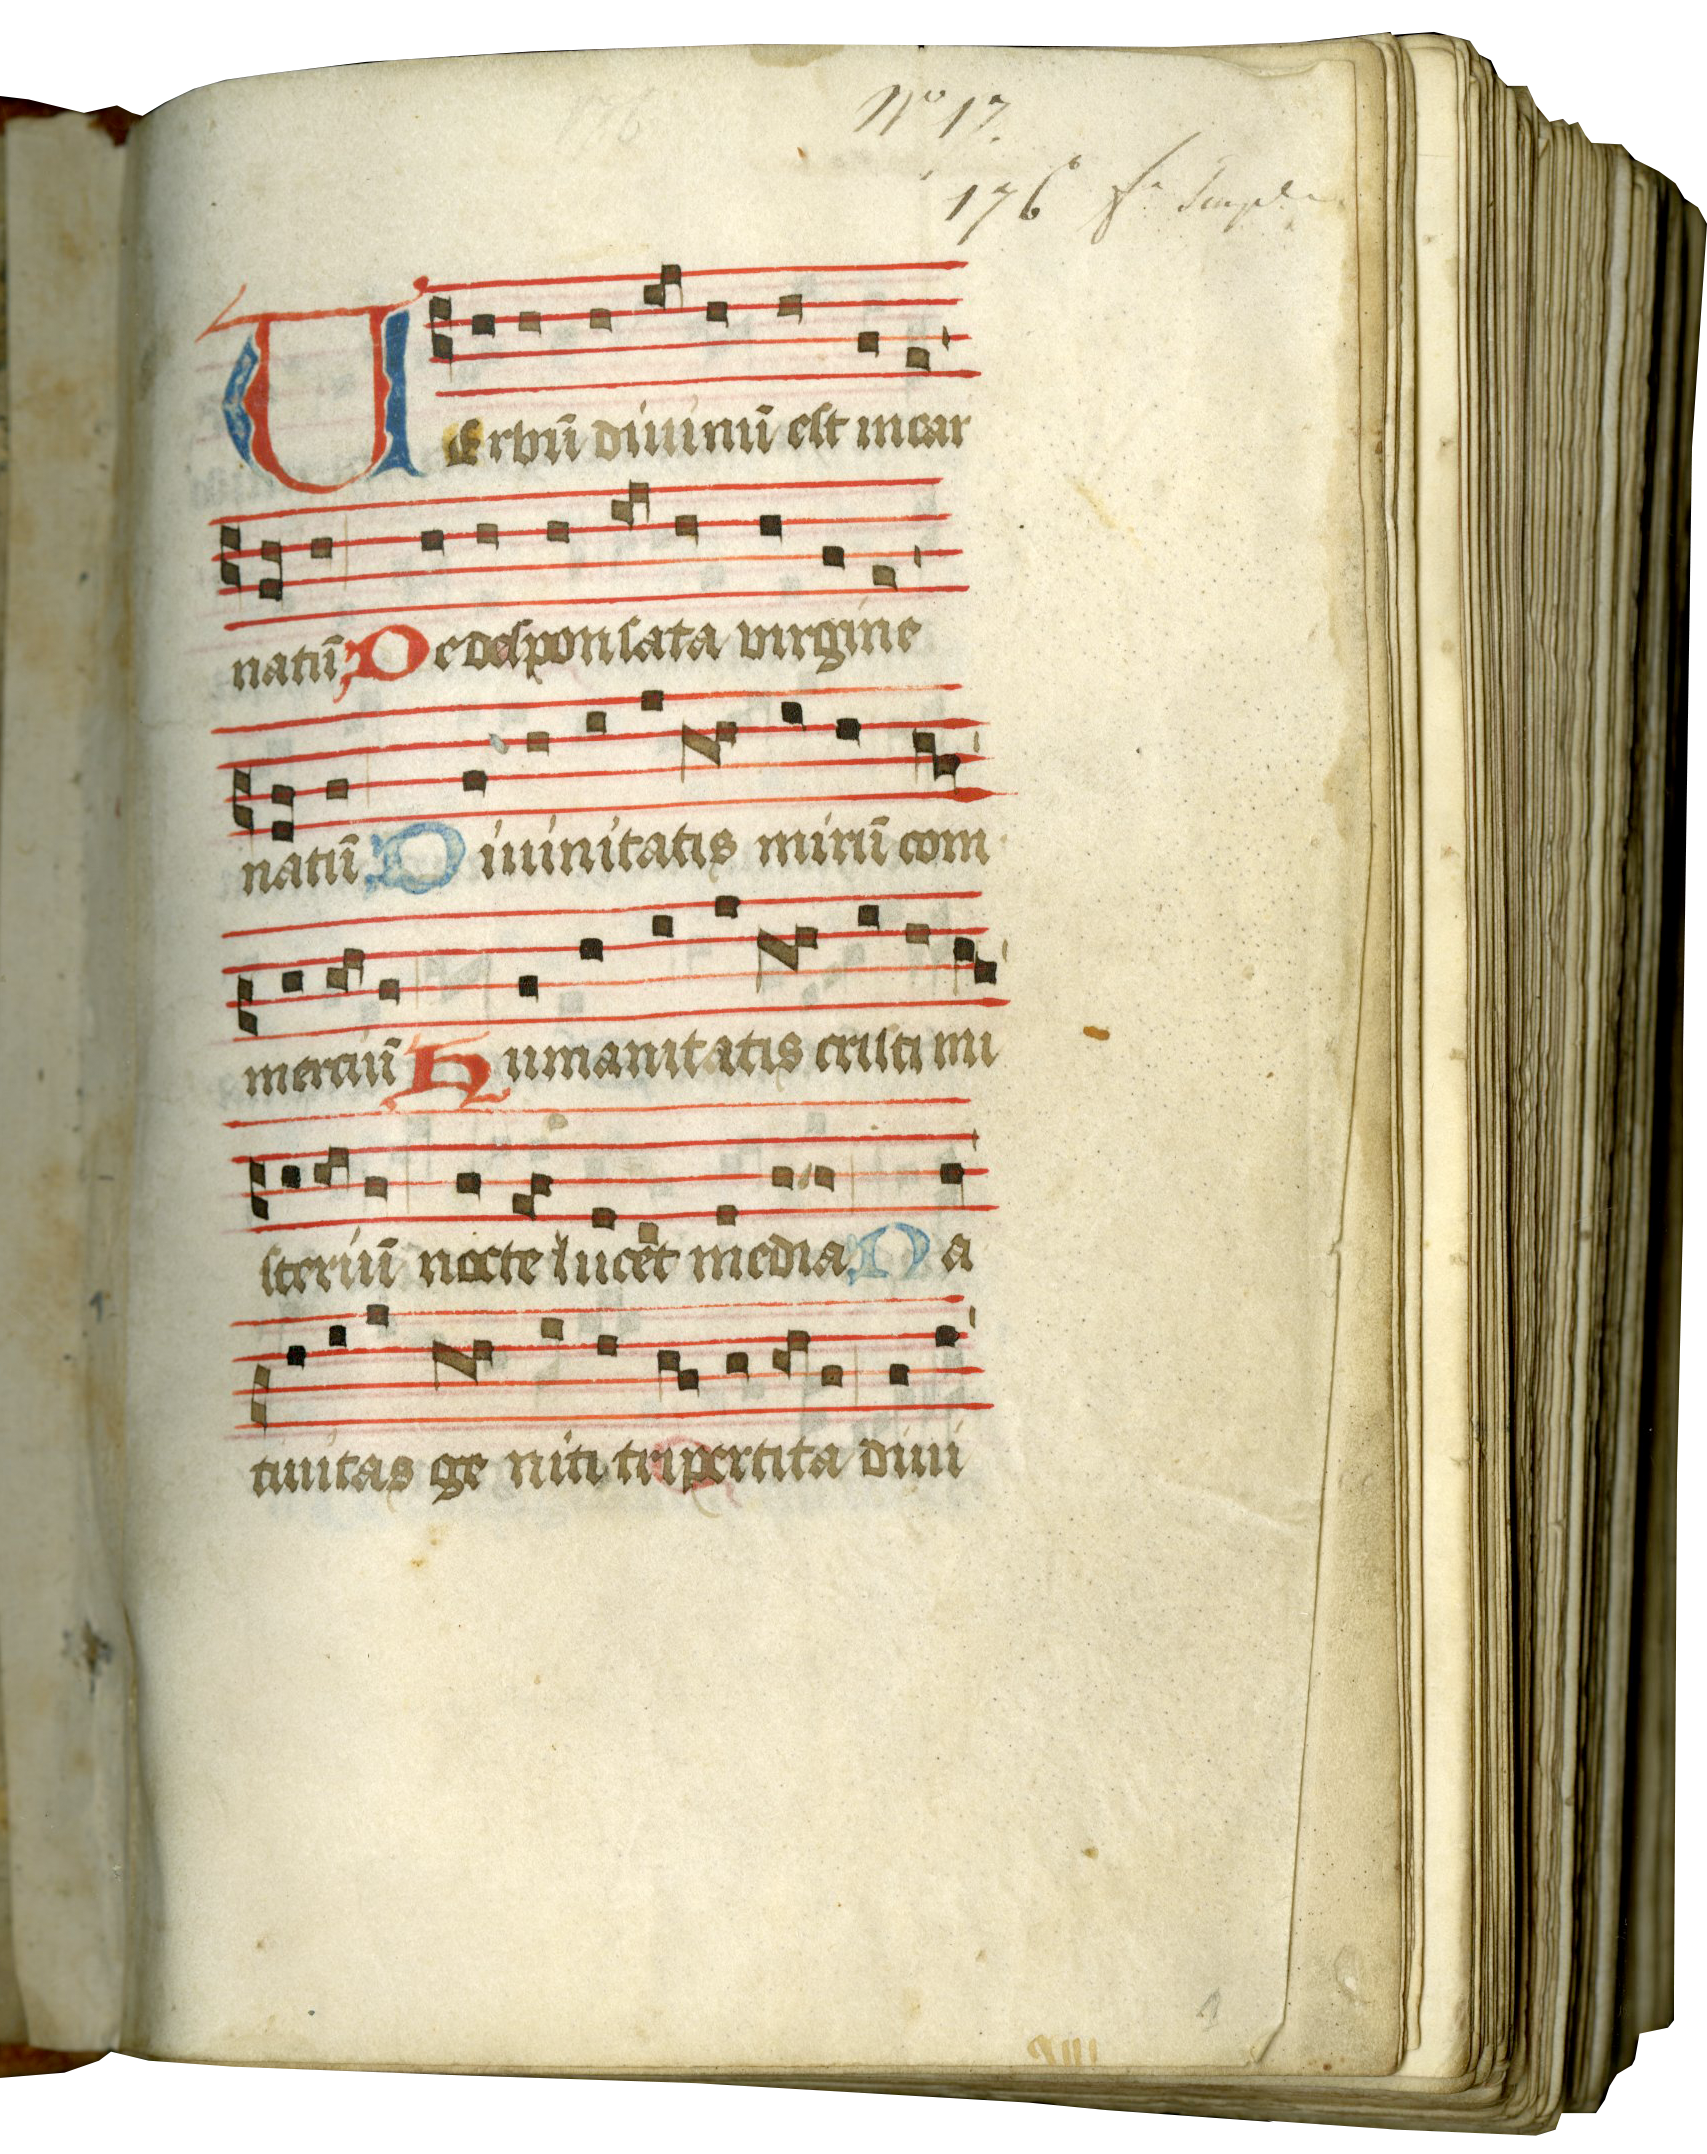 Nº 17.
176
Verbū diuinū est incar
natū De desponsata virgine
natū Diuinitatis mirū com
merciū Humanitatis cristi mi
steriū nocte lucet media Na
tiuitas ge niti tripertita diui